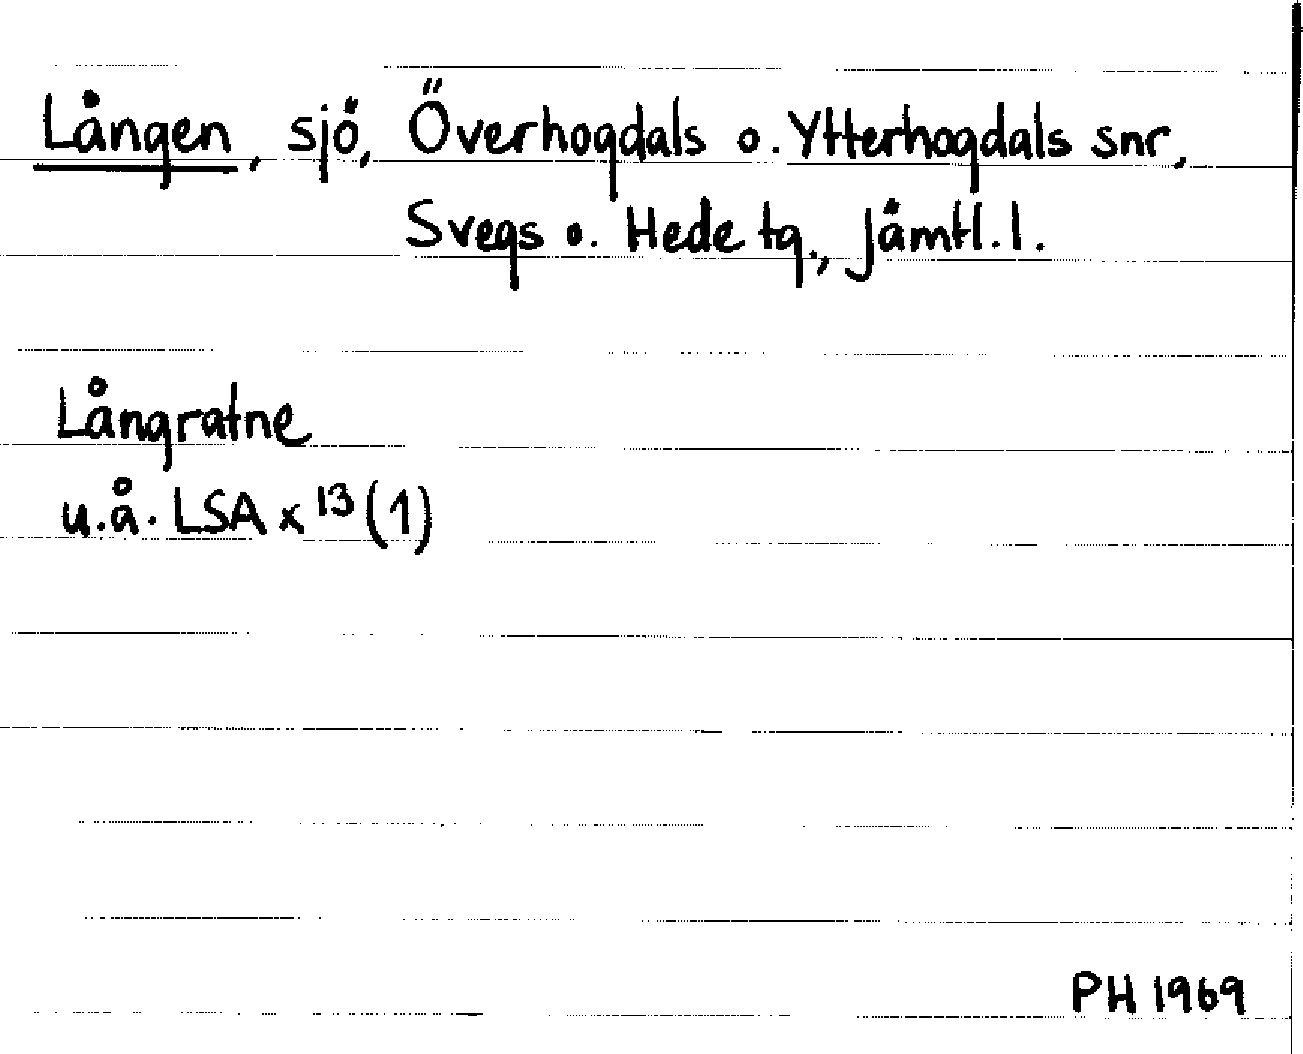 Lången, sjö, Överhogdals o. Ytterhogdals snr,
Svegs o. Hede tg., Jämtl. l.
Långratne
u.å. LSA x 13 (1)
PH 1969